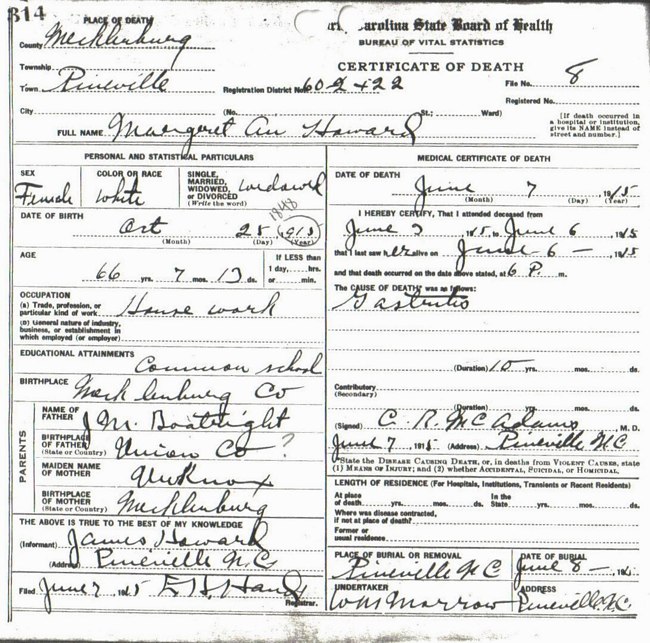 314
PLACE OF DEATH
County Mecklenburg
Township
Town Pineville
City
Carolina State Board of Health
BUREAU OF VITAL STATISTICS
CERTIFICATE OF DEATH
Registration District No. 60 2422 File No. 8
Registered No.
(No. St.; Ward)
[If death occurred in a hospital or institution, give its NAME instead of street and number.]
FULL NAME Margeret An Howard
PERSONAL AND STATISTICAL PARTICULARS
SEX Female
COLOR OR RACE White
SINGLE, MARRIED, WIDOWED, or DIVORCED (Write the word)
DATE OF BIRTH 1848
Oct 25 1915
(Month) (Day) (Year)
AGE
66 yrs. 7 mos. 13 ds.
If LESS than 1 day, hrs. or min.
OCCUPATION
(a) Trade, profession, or particular kind of work House work
(b) General nature of industry, business, or establishment in which employed (or employer)
EDUCATIONAL ATTAINMENTS
Common school
BIRTHPLACE
Mecklenburg Co
PARENTS
NAME OF FATHER J M. Boatright
BIRTHPLACE OF FATHER (State or Country) Union Co ?
MAIDEN NAME OF MOTHER
BIRTHPLACE OF MOTHER (State or Country) Mecklenburg
THE ABOVE IS TRUE TO THE BEST OF MY KNOWLEDGE
(Informant) James Howard
(Address) Pineville N.C.
Filed June 7, 1915 Registrar.
MEDICAL CERTIFICATE OF DEATH
DATE OF DEATH
June 7, 1915
(Month) (Day) (Year)
I HEREBY CERTIFY, That I attended deceased from
June 3 1915, to June 6 1915
that I last saw her alive on June 6 - 1915
and that death occurred on the date above stated, at 6 P. m.
The CAUSE OF DEATH was as follows:
Gastritis
(Duration) 10 yrs. mos. ds.
Contributory
(Secondary)
(Duration) yrs. mos. ds.
(Signed) C. R. McAdams, M. D.
June 7, 1915 (Address) Pineville N.C
*State the DISEASE CAUSING DEATH, or, in deaths from VIOLENT CAUSES, state
(1) MEANS OF INJURY; and (2) whether ACCIDENTAL, SUICIDAL, or HOMICIDAL.
LENGTH OF RESIDENCE (For Hospitals, Institutions, Transients or Recent Residents)
At place of death yrs. mos. ds. In the State yrs. mos. ds.
Where was disease contracted, if not at place of death?
Former or usual residence
PLACE OF BURIAL OR REMOVAL Pineville N C
DATE OF BURIAL June 8 - 191
UNDERTAKER W M Morrow
ADDRESS Pineville N.C.